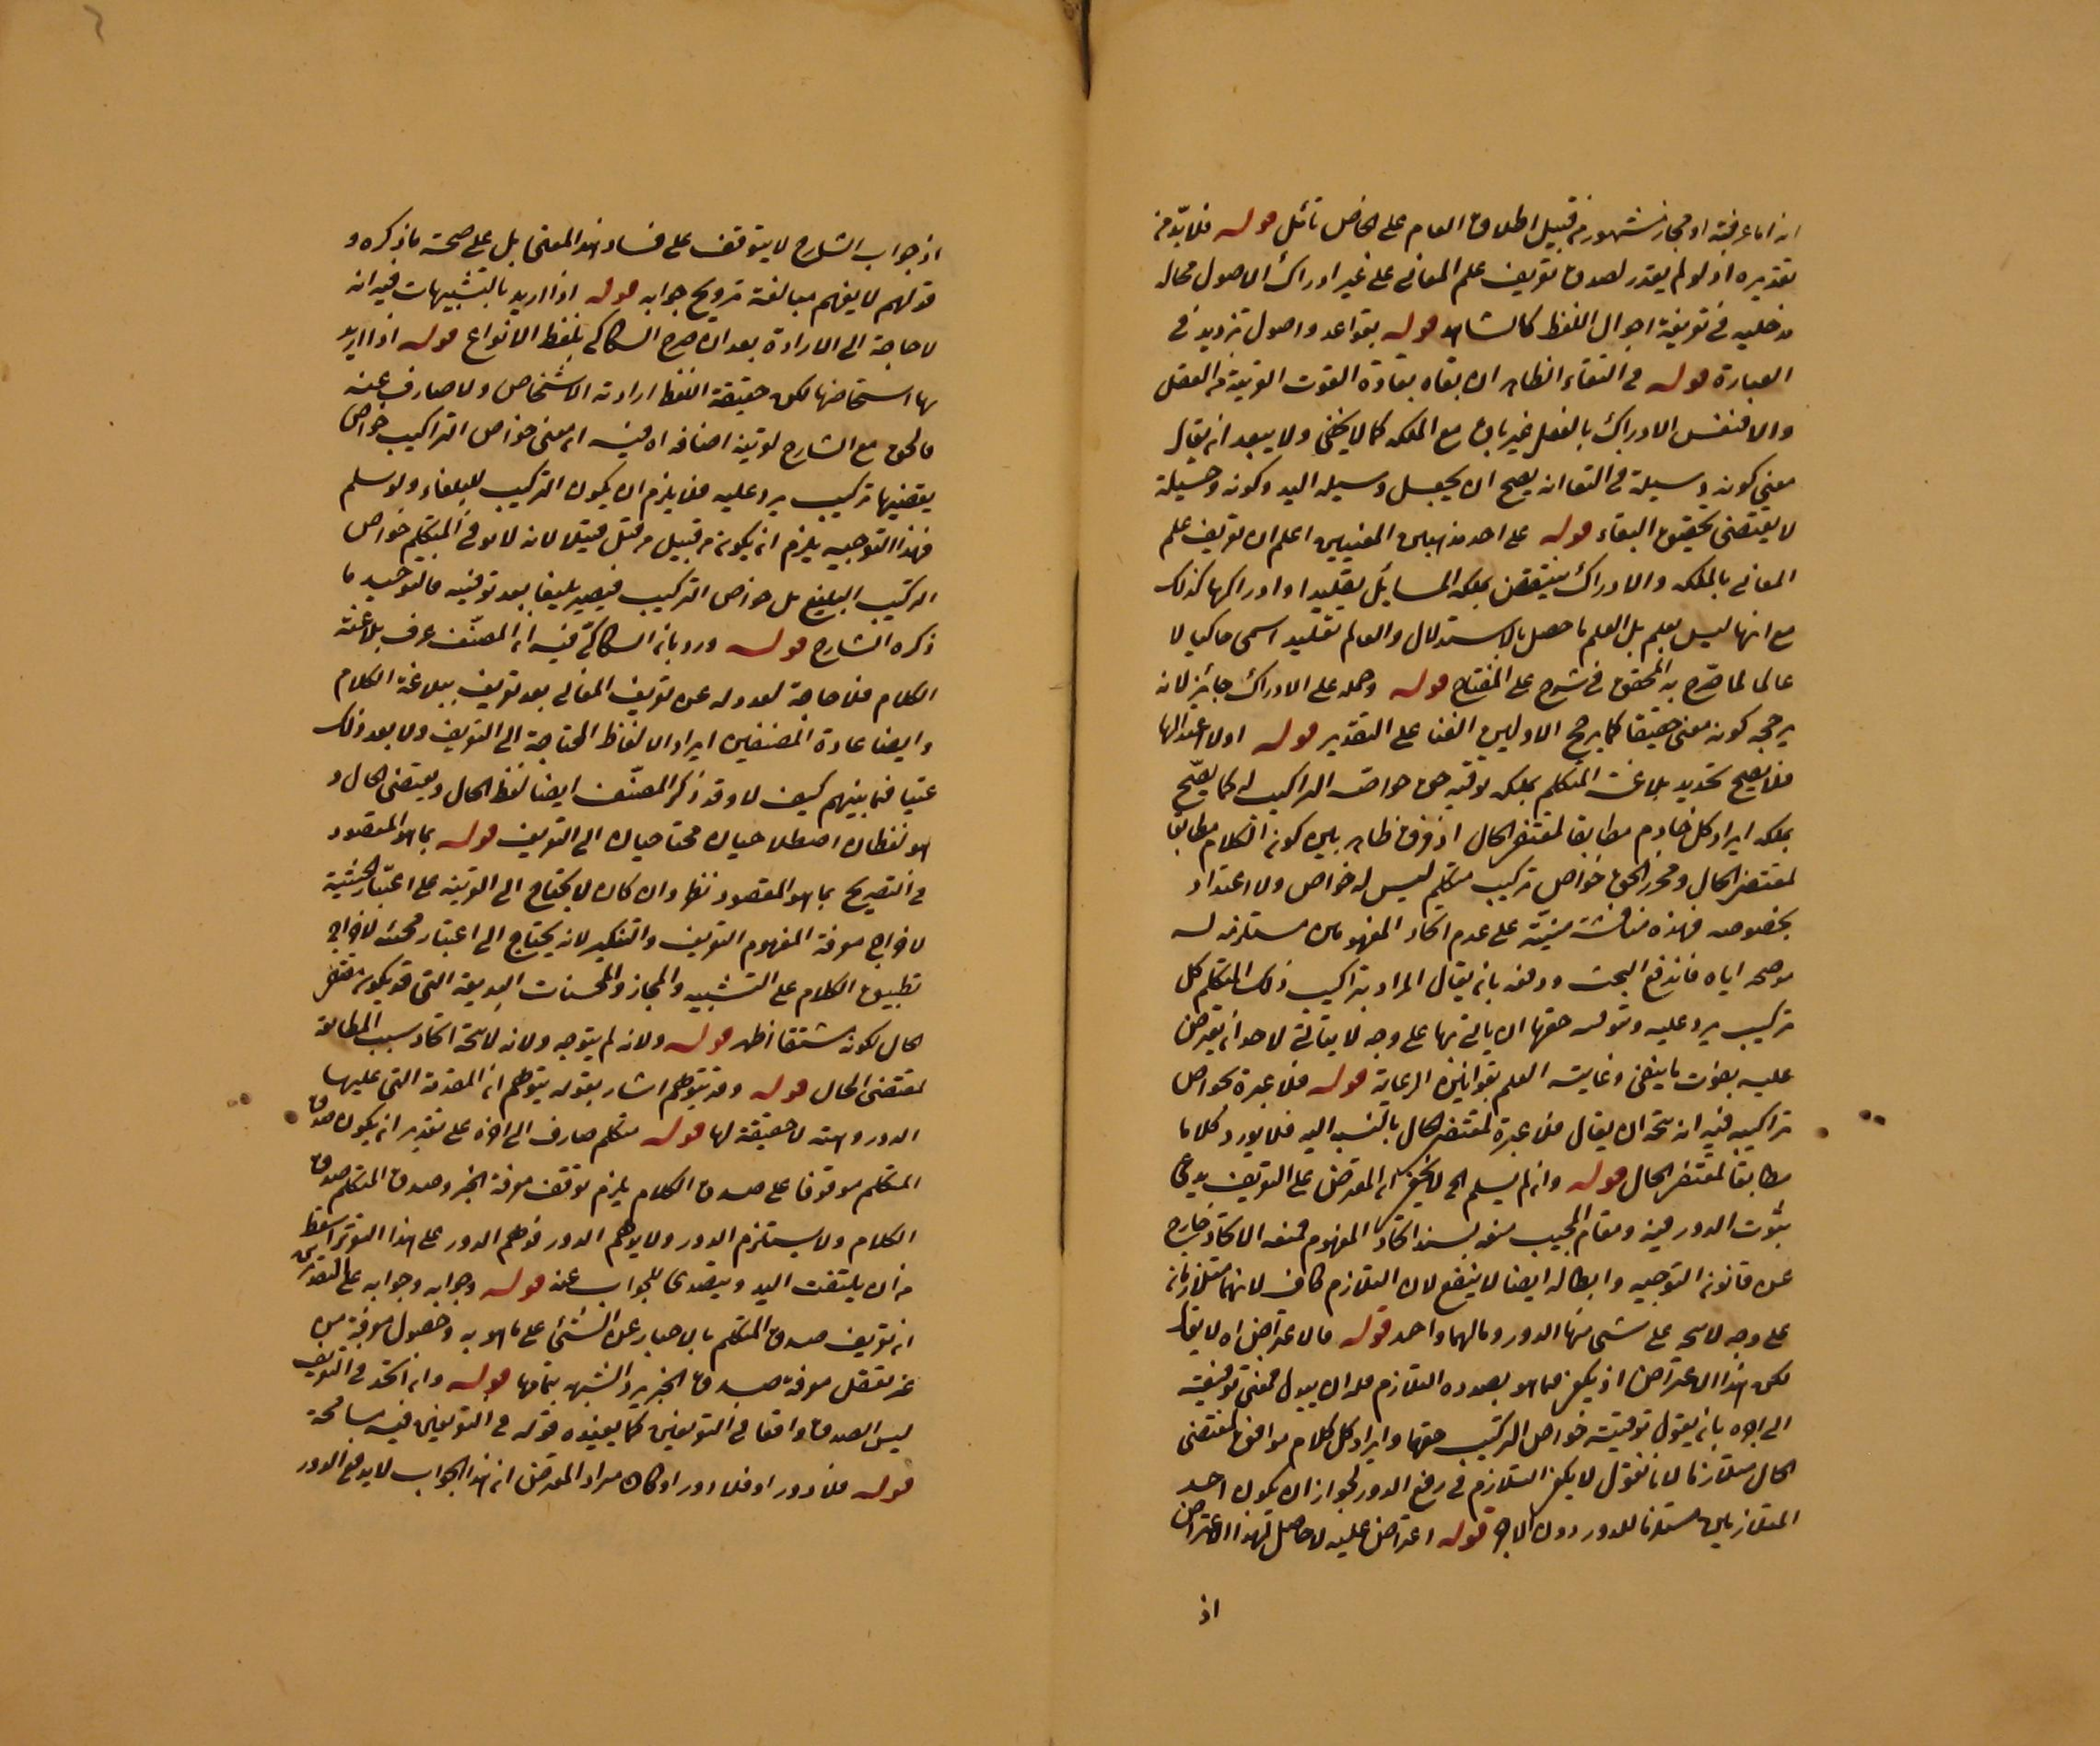 انه اما عرفية او مجاز مشهور من قبيل اطلاق العام على الخاص تأمل قوله فلا بد من
تقديره اذ لو لم يقدر لصدق تعريف علم المعاني على غير ادراك الاصول محاله
مدخلية في تعريفة احوال اللفظ كالمشاهد قوله بقواعد واصول ترديد في
العبارة قوله في البقاء الظاهر ان بقاه بقادة القوت القريبة من الفعل
والا فنفس الادراك بالفعل غير باق مع الملكه كما لا يخفى ولا يبعد ان يقال
معنى كونه وسيلة في البقا انه يصح ان يجعل وسيله اليه وكونه وسيلة
لا يقتضى تحقيق البقاء قوله على احد مذهبين المعنيين اعلم ان تعريف علم
المعاني بالملكه والادراك ينتقض بملكه المسايل تقليدا او ادراكها كذلك
مع انها ليس بعلم بل العلم ما حصل بالاستدلال والعالم تقليدا سمى حاكيا لا
عالما لما صرح به المحقق في شرح على المفتاح قوله وحمله على الادراك جائز لانه
يرجحه كونه معنى حقيقيا كما يرجح الاولين الفنا على التقدير قوله اولا اعتد بها
فلا يصح تحديد بلاغت المتكلم بملكه توفيه حق خواص التراكيب له كما يصح
بملكه ايراد كل كلام مطابقا لمقتضى الحال اذ فرق ظاهر بين كون الكلام مطابقا
لمقتضى الحال ومحرز الحق خواص تركيب متكلم ليس له خواص ولا اعتداد
بخصوصه فهذه مناقشة مبنية على عدم اتحاد المفهومان مستلزمه له
موضحه اياه فاندفع البحث ودفعه بان يقال المراد بتراكيب ذلك المتكلم كل
تركيب يرد عليه وتوفيه حقها ان ياتي بها على وجه لا يتاتى لاحد ان يعترض
عليه بفوت ما ينبغى وغايته العلم بقوانين الرعاية قوله فلا عبرة بخواص
تراكيبه فيه انه يتجه ان يقال فلا عبرة لمقتضى الحال بالنسبه اليه فلا يورد كلاما
مطابقا لمقتضى الحال قوله وان لم يسلم الخ لا يخفى ان المعترض على التعريف يدعى
ثبوت الدور فيه ومقام المجيب منعه بسند اتحاد المفهوم فمنعه الاتحاد خارج
عن قانون التوجيه وابطاله ايضا لا ينفع لان التلازم كاف لانهما متلازمان
على وجه لا يتجه على شى منها الدور ومالهما واحد قوله فالاعتراض اه لا يقال
لكن هذا الاعتراض اذ يكفى لما هو بصدده التلازم فله ان يبدل فمعنى توفيته
الى اخره بان يقول توفية خواص التركيب حقها وايراد كل كلام موافق لمقتضى
الحال متلازما لانا نقول لا يكفى التلازم في رفع الدور لجواز ان يكون احد
المتلازمين مستلزما للدور دون الاخر قوله اعتراض عليه لا حاصل لهذا الاعتراض
اذ
اذ جواب الشارح لا يتوقف على فساد هذا المعنى بل على صحة ما ذكره و
قولهم لا يفهم مبالغة ترويج جوابه قوله اذا اريد بالتشبيهات فيه انه
لا حاجة الى الارادة بعد ان صرح السكاكى بلفظ الانواع قوله اذا اريد
بها اشخاصها لكن حقيقة اللفظ ارادته الاشخاص ولا صارف عنه
فالحق مع الشارح لقرينة اضافه اه فيه ان معنى خواص التراكيب خواص
يقتضيها تركيب يرد عليه فلا يلزم ان يكون التركيب للبلغاء ولو سلم
فهذا التوجيه يلزم ان يكون من قبيل من قتل قتيلا لانه لا يوفى المتكلم خواص
التركيب البليغ بل خواص التركيب فيصير بليغا بعد توفيه فالتوجيه ما
ذكره الشارح قوله ورد بان السكاكى فيه ان المصنف عرف بلاغة
الكلام فلا حاجة لعدوله عن تعريف المعانى بعد تعريف ببلاغة الكلام
وايضا عادة المصنفين ايراد الالفاظ المحتاجة الى التعريف ولا يعد ذلك
عيبا فيما بينهم كيف لا وقد ذكر المصنف ايضا لفظ الحال ويقتضى الحال و
هو لفظان اصطلاحيان محتاجان الى التعريف قوله بما هو المقصود
في التصريح بما هو المقصود نظر وان كان لا يحتاج الى القرينة على اعتبار الحيثية
لاخراج معرفة المفهوم التعريف والتنكير لانه يحتاج الى اعتبار محسنه لاخراج
تطبيق الكلام على التشبيه والمجاز والمحسنات البديعية التى قد يكون مقتضى
الحال لكونه مشتقا ظهر قوله ولانه لم يتوجه ولانه لا يتجه اتحاد سبب المطابقة
لمقتضى الحال قوله وقد يتوهم اشار بقوله يتوهم ان المقدمة التى عليها
الدور وهميه لا حقيقة لها قوله متكلم صارف الى اخره على تقدير ان يكون صدق
المتكلم موقوفا على صدق الكلام يلزم توقف معرفة الخبر وصدق المتكلم صدق
الكلام ولا يستلزم الدور ولا يوهم الدور فوهم الدور على هذا التقرير اسقط
من ان يلتفت اليه ويتصدى للجواب عنه قوله وجوابه وجوابه على التقديرين
ان تعريف صدق المتكلم بالاخبار عن الشئ على ما هو به وحصول معرفة من
غير تعقل معرفة صدق الخبر يرد الشبهه بتمامها قوله وان اتحد في التعريف
ليس الصدق واقعا في التعريفين كما يفيده قوله في التعريفين فيه مسامحة
قوله فلا دور او فلا دور او كان مراد المعترض ان هذا الجواب لا يدفع الدور